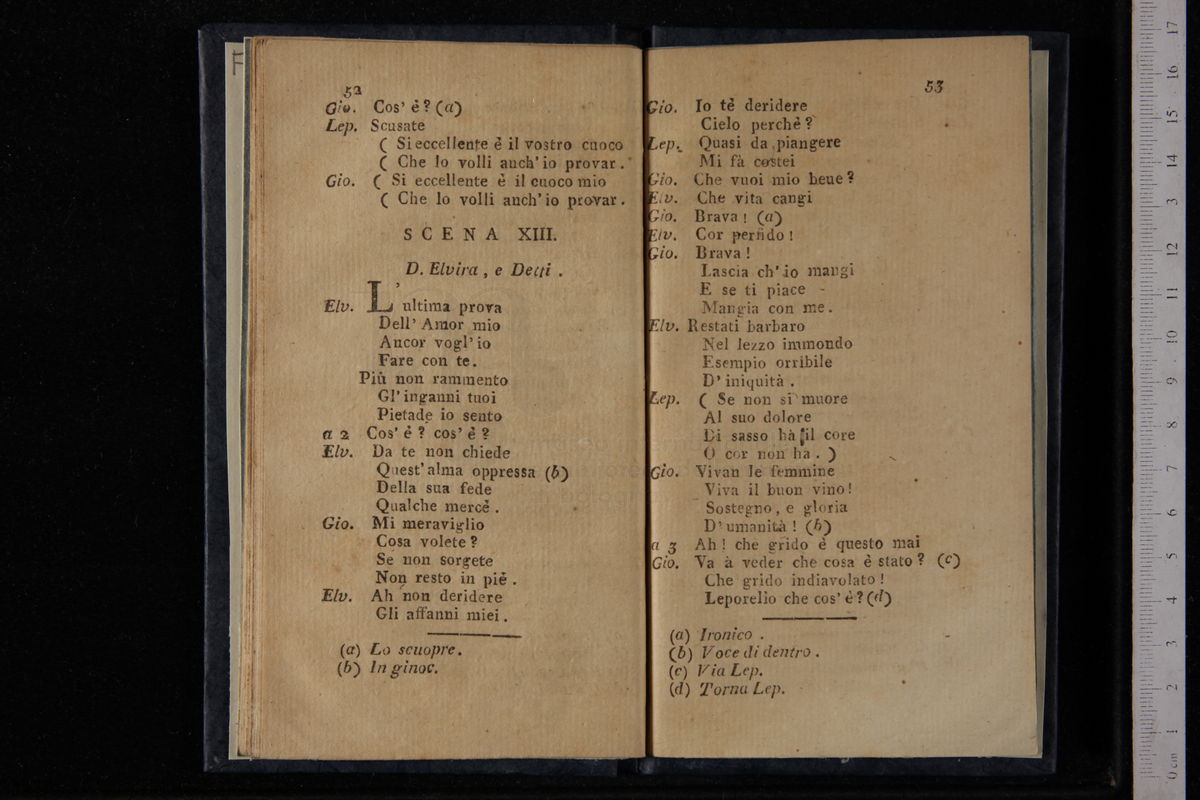 F
52
Gio. Cos' è? (a)
Lep. Scusate
( Si eccellente è il vostro cuoco
( Che lo volli anch' io provar.
Gio. ( Si eccellente è il cuoco mio
( Che lo volli anch' io provar.
SCENA XIII.
D. Elvira, e Detti.
Elv. L' ultima prova
Dell' Amor mio
Ancor vogl' io
Fare con te.
Più non rammento
Gl' inganni tuoi
Pietade io sento
a 2 Cos' è? cos' è?
Elv. Da te non chiede
Quest' alma oppressa (b)
Della sua fede
Qualche mercè.
Gio. Mi meraviglio
Cosa volete?
Se non sorgete
Non resto in piè.
Elv. Ah non deridere
Gli affanni miei.
(a) Lo scuopre.
(b) In ginoc.
53
Gio. Io tè deridere
Cielo perchè?
Lep. Quasi da piangere
Mi fà costei
Gio. Che vuoi mio bene?
Elv. Che vita cangi
Gio. Brava! (a)
Elv. Cor perfido!
Gio. Brava!
Lascia ch' io mangi
E se ti piace
Mangia con me.
Elv. Restati barbaro
Nel lezzo immondo
Esempio orribile
D' iniquità.
Lep. ( Se non si muore
Al suo dolore
Di sasso hà il core
O cor non ha. )
Gio. Vivan le femmine
Viva il buon vino!
Sostegno, e gloria
D' umanità! (b)
a 3 Ah! che grido è questo mai
Gio. Va à veder che cosa è stato? (c)
Che grido indiavolato!
Leporello che cos' è? (d)
(a) Ironico.
(b) Voce di dentro.
(c) Via Lep.
(d) Torna Lep.
0 cm 1 2 3 4 5 6 7 8 9 10 11 12 13 14 15 16 17